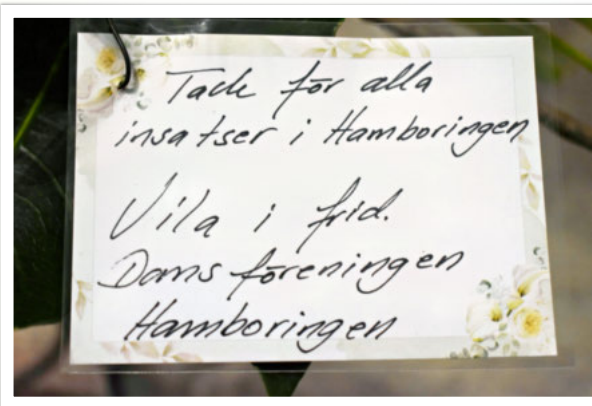 Tack för alla
insatser i Hamboringen
Vila i frid.
Dansföreningen
Hamboringen